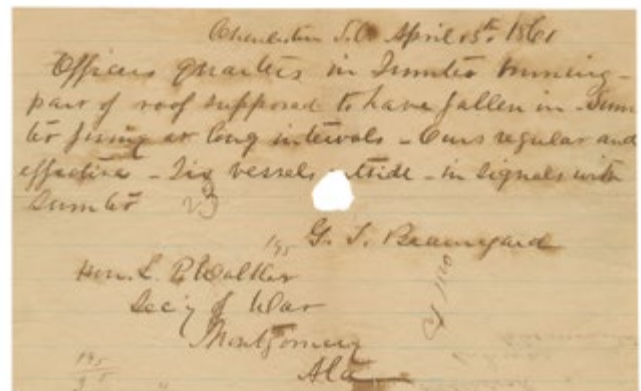 Charleston S.C. April 13th 1861
Officers quarters in Sumter burning -
part of roof supposed to have fallen in - Sum
ter firing at long intervals - Ours regular and
effective - Six vessels outside - in signals with
Sumter 23
G. T. Beauregard
Hon. L. P. Walker
Sec'y of War
Montgomery
Ala